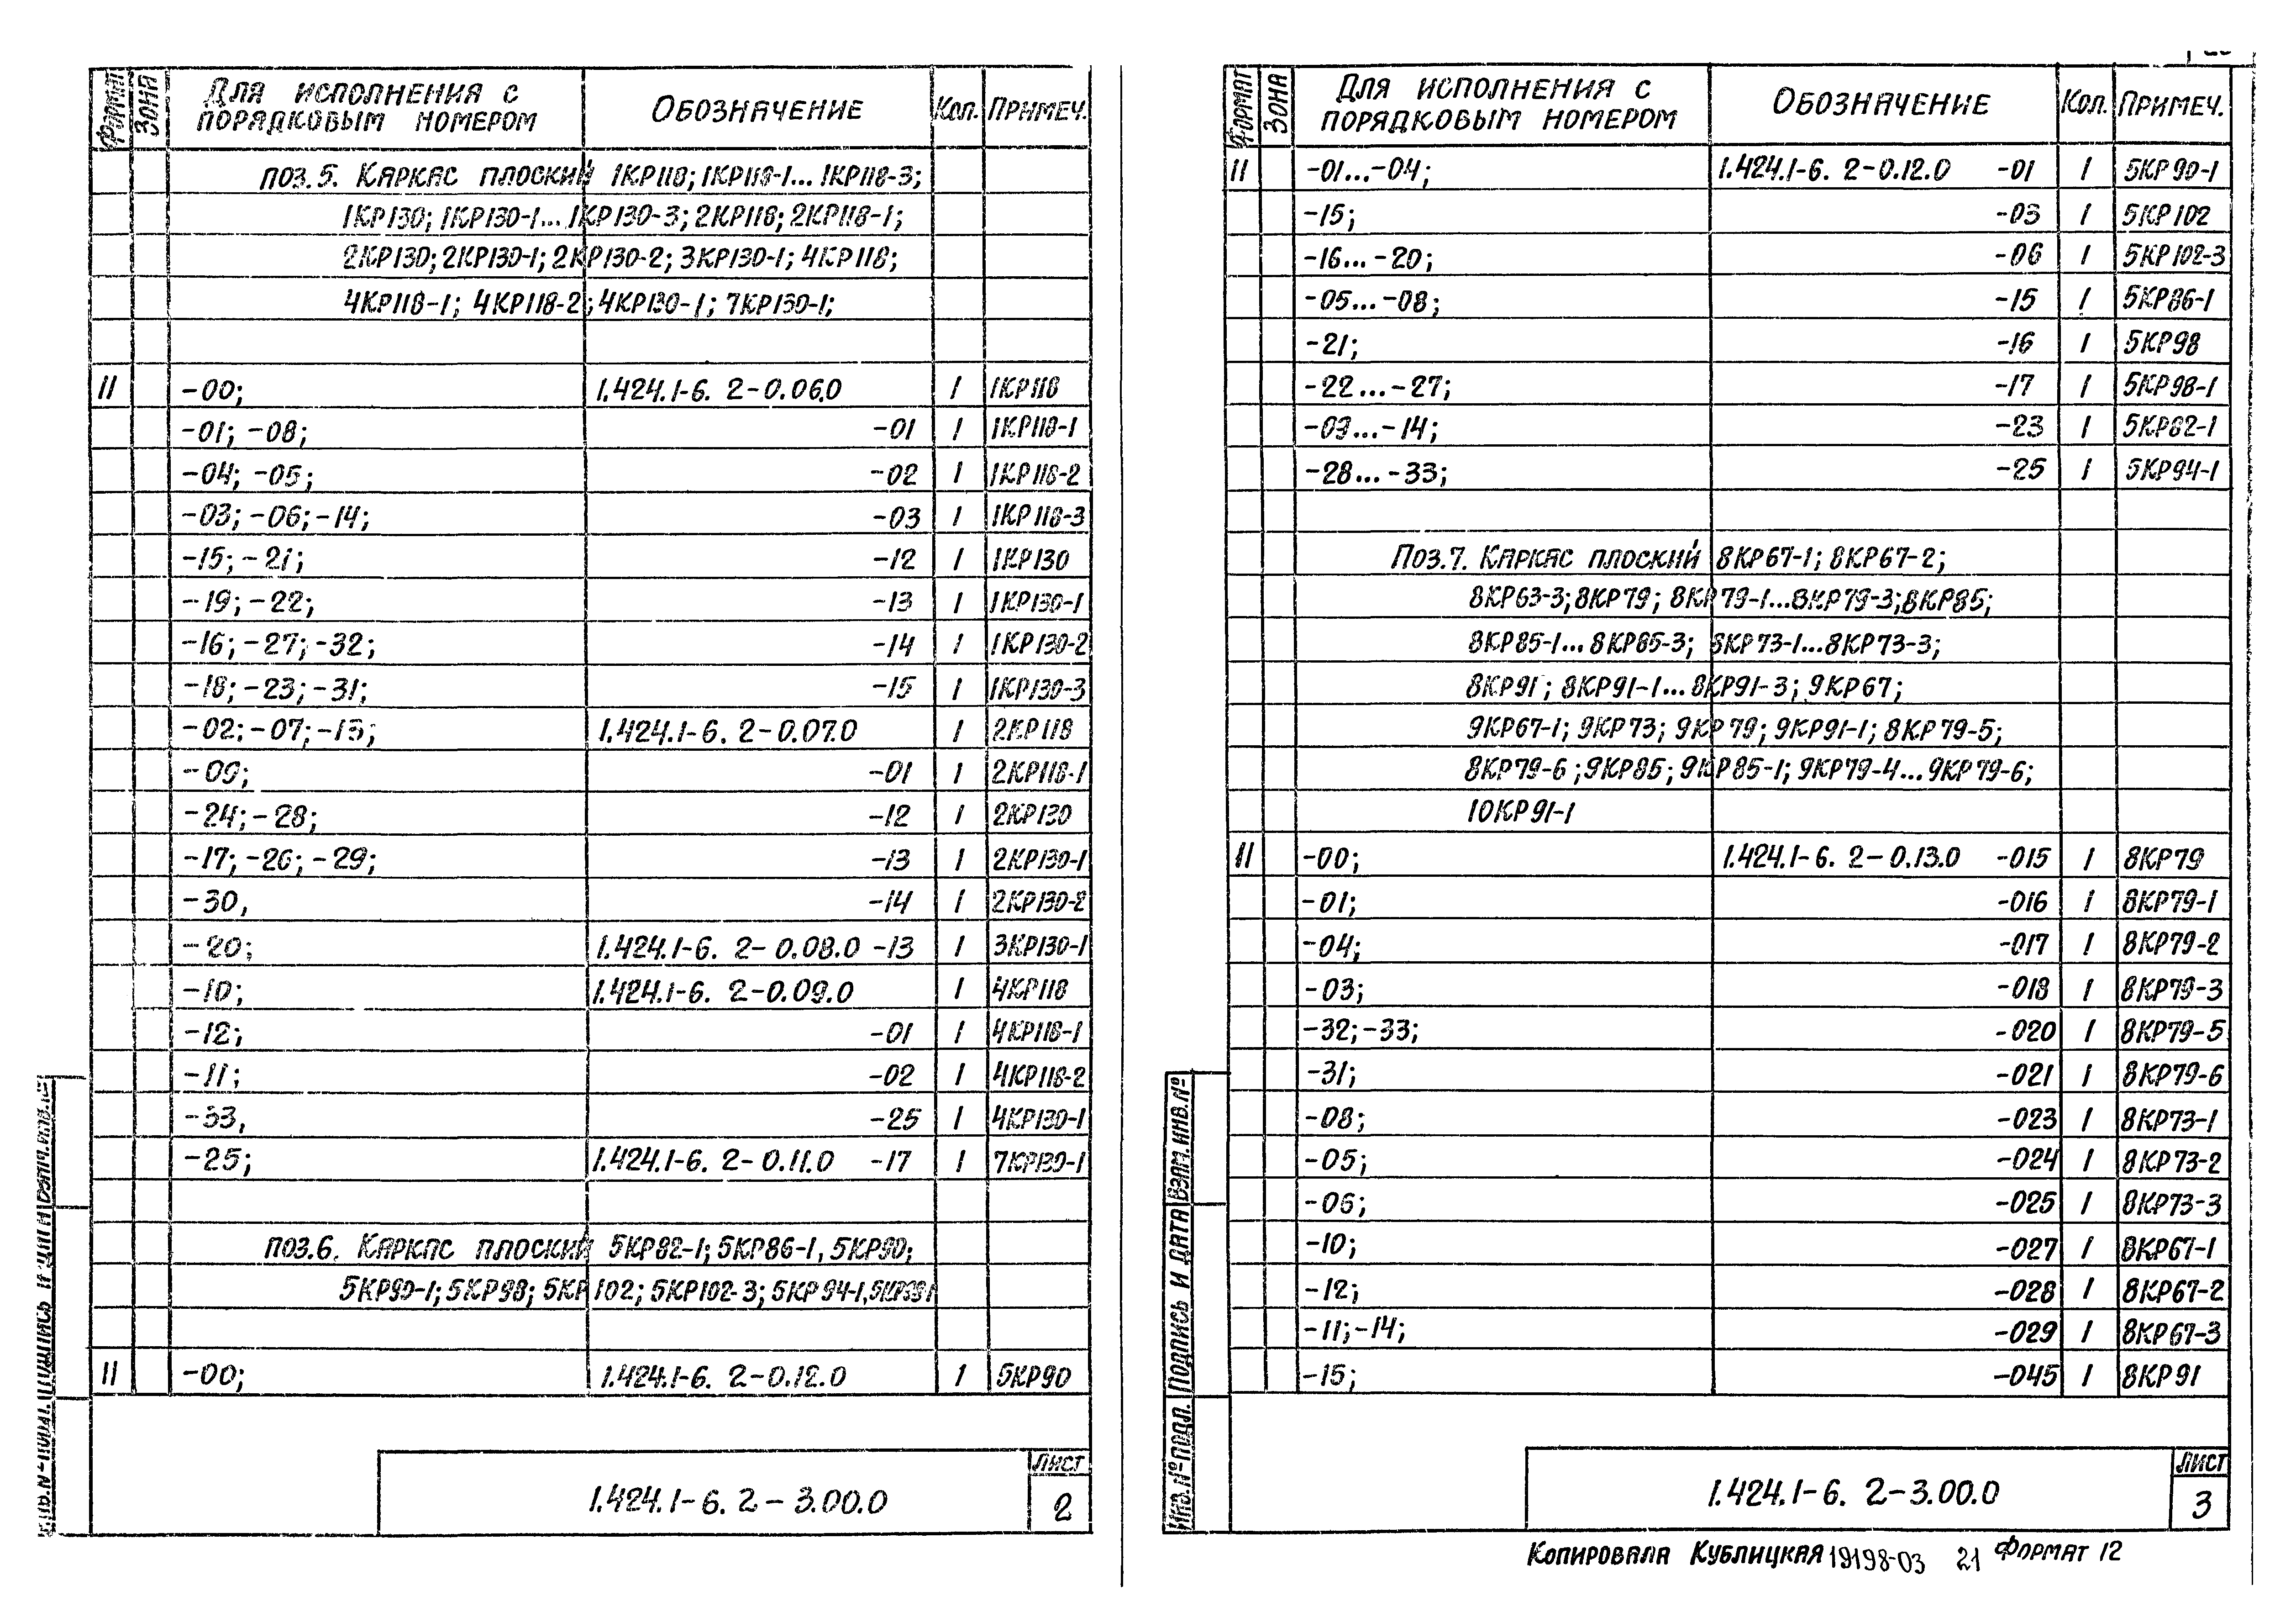 Формат Зона Для исполнения с порядковым номером Обозначение Кол. Примеч.
поз.5. Каркас плоский 1КР118; 1КР118-1... 1КР118-3;
1КР130; 1КР130-1... 1КР130-3; 2КР118; 2КР118-1;
2КР130; 2КР130-1; 2КР130-2; 3КР130-1; 4КР118;
4КР118-1; 4КР118-2; 4КР130-1; 7КР130-1;
11 -00; 1.424.1-6. 2-0.06.0 1 1КР118
-01; -08; -01 1 1КР118-1
-04; -05; -02 1 1КР118-2
-03; -06; -14; -03 1 1КР118-3
-15; -21; -12 1 1КР130
-19; -22; -13 1 1КР130-1
-16; -27; -32; -14 1 1КР130-2
-18; -23; -31; -15 1 1КР130-3
-02; -07; -13; 1.424.1-6. 2-0.07.0 1 2КР118
-09; -01 1 2КР118-1
-24; -28; -12 1 2КР130
-17; -26; -29; -13 1 2КР130-1
-30, -14 1 2КР130-2
-20; 1.424.1-6. 2-0.08.0 -13 1 3КР130-1
-10; 1.424.1-6. 2-0.09.0 1 4КР118
-12; -01 1 4КР118-1
-11; -02 1 4КР118-2
-33, -25 1 4КР130-1
-25; 1.424.1-6. 2-0.11.0 -17 1 7КР130-1
поз.6. Каркас плоский 5КР82-1; 5КР86-1, 5КР90;
5КР90-1; 5КР98; 5КР102; 5КР102-3; 5КР94-1,
11 -00; 1.424.1-6. 2-0.12.0 1 5КР90
1.424.1-6. 2-3.00.0
Лист
2
Формат Зона Для исполнения с порядковым номером Обозначение Кол. Примеч.
11 -01...-04; 1.424.1-6. 2-0.12.0 -01 1 5КР90-1
-15; -03 1 5КР102
-16...-20; -06 1 5КР102-3
-05...-08; -15 1 5КР86-1
-21; -16 1 5КР98
-22...-27; -17 1 5КР98-1
-09...-14; -23 1 5КР82-1
-28...-33; -25 1 5КР94-1
Поз.7. Каркас плоский 8КР67-1; 8КР67-2;
8КР63-3; 8КР79; 8КР79-1...8КР79-3; 8КР85;
8КР85-1... 8КР85-3; 8КР73-1...8КР73-3;
8КР91; 8КР91-1...8КР91-3; 9КР67;
9КР67-1; 9КР73; 9КР79; 9КР91-1; 8КР79-5;
8КР79-6; 9КР85; 9КР85-1; 9КР79-4... 9КР79-6;
10КР91-1
11 -00; 1.424.1-6. 2-0.13.0 -015 1 8КР79
-01; -016 1 8КР79-1
-04; -017 1 8КР79-2
-03; -018 1 8КР79-3
-32; -33; -020 1 8КР79-5
-31; -021 1 8КР79-6
-08; -023 1 8КР73-1
-05; -024 1 8КР73-2
-06; -025 1 8КР73-3
-10; -027 1 8КР67-1
-12; -028 1 8КР67-2
-11; -14; -029 1 8КР67-3
-15; -045 1 8КР91
Инв.№подл. Подпись и дата Взам.инв.№
1.424.1-6. 2-3.00.0
Лист
3
Копировала Кублицкая 19198-03 21 Формат 12